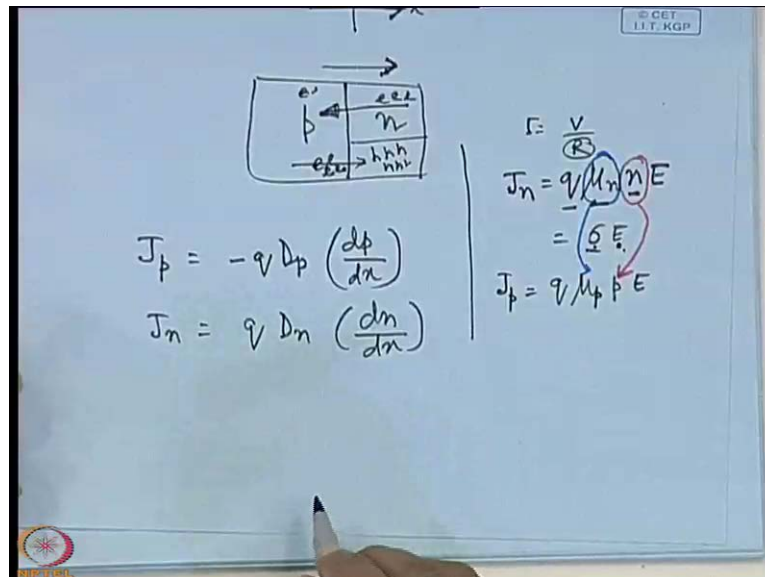 © CET
I.I.T. KGP
p
n
I = V/R
J_n = q μ_n n E
= σ E
J_p = q μ_p p E
J_p = - q D_p (dp/dx)
J_n = q D_n (dn/dx)
NPTEL